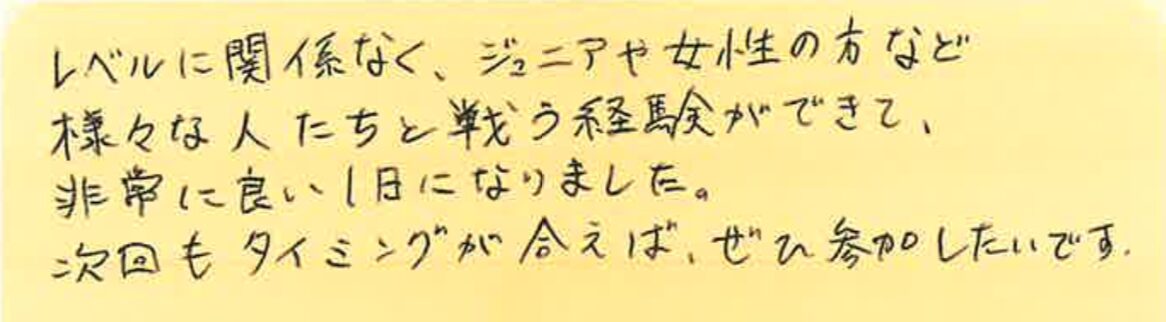 レベルに関係なく、ジュニアや女性の方など
様々な人たちと戦う経験ができて、
非常に良い1日になりました。
次回もタイミングが合えば、ぜひ参加したいです.